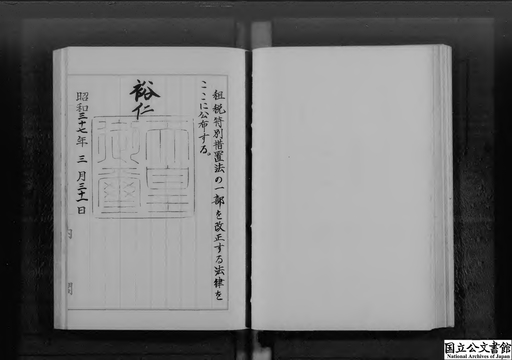 租税特別措置法の一部を改正する法律を
ここに公布する。
裕仁
天皇御璽
昭和三十七年三月三十一日
国立公文書館
National Archives of Japan